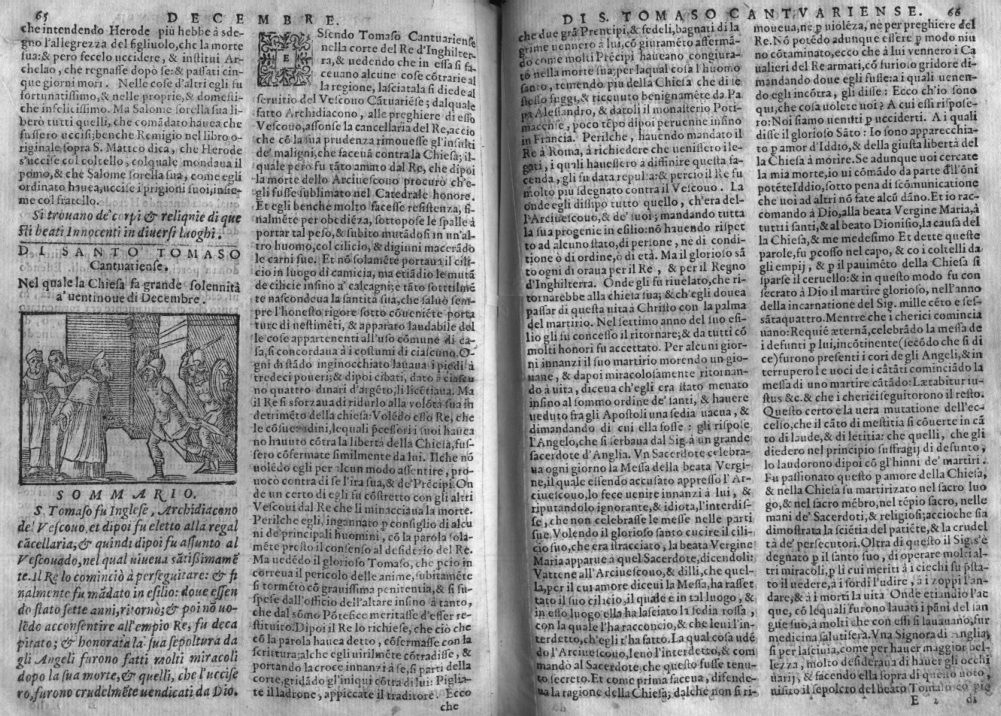 65
DECEMBRE.
che intendendo Herode più hebbe à sde-
gno l'allegrezza del figliuolo, che la morte
sua: & però fecelo uccidere, & institui Ar-
chelao, che regnasse dopò se: & passati cin-
que giorni morì. Nelle cose d'altri egli fu
fortunatissimo, & nelle proprie, & domesti-
che infelicissimo. Ma Salome sorella sua li-
berò tutti quelli, che comādato hauea che
fussero uccisi; benche Remigio nel libro o-
riginale sopra S. Matteo dica, che Herode
s'uccise col coltello, colquale mondaua il
pomo, & che Salome sorella sua, come egli
ordinato hauea, uccise i prigioni suoi, insie-
me col fratello.
Si trouano de' corpi & reliquie di que
sti beati Innocenti in diuersi luoghi.
DI SANTO TOMASO
Cantuariense.
Nel quale la Chiesa fa grande solennità
a' uentinoue di Decembre.
SOMMARIO.
S. Tomaso fu Inglese, Archidiacono
del Vescouo, et dipoi fu eletto alla regal
cācellaria, & quindi dipoi fu assunto al
Vescouado, nel qual uiueua sātissimamē
te. Il Re lo cominciò à perseguitare: & fi
nalmente fu mādato in esilio: doue essen
do stato sette anni, ritornò; & poi nō uo-
lēdo acconsentire all'empio Re, fu deca
pitato; & honorata la sua sepoltura da
gli Angeli furono fatti molti miracoli
dopo la sua morte, & quelli, che l'uccise
ro, furono crudelmēte uendicati da Dio.
ESsendo Tomaso Cantuariense
nella corte del Re d'Inghilter-
ra, & uedendo che in essa si fa-
ceuano alcune cose cōtrarie al
la regione, lasciatala si diede al
seruitio del Vescouo Cātuariēse; dal quale
fatto Archidiacono, alle preghiere di esso
Vescouo, assonse la cancellaria del Re, acciò
che cō la sua prudenza rimouesse gl'insulti
de' maligni, che faceuā contra la Chiesa; il-
quale però fu tāto amato dal Re, che dipoi
la morte dello Arciuescouo procurò ch'e-
gli fusse sublimato nel Catedrale honore.
Et egli benche molto facesse resistenza, fi-
nalmēte per obediēza, sottopose le spalle à
portar tal peso, & subito mutādosi in un'al-
tro huomo, col cilicio, & digiuni macerādo
le carni sue. Et nō solamēte portaua il cili-
cio in luogo di camicia, ma etiādio le mutā
de cilicie insino a' calcagni; e tāto sottilmē
te nascondeua la santità sua, che saluò sem-
pre l'honesto rigore sotto cōueniēte porta
ture di uestimēti, & apparato laudabile del
le cose appartenenti all'uso comune di ca-
sa, si concordaua à i costumi di ciascuno. O-
gni dì stādo inginocchiato lauaua i piedi à
tredeci poueri; & dipoi cibati, dato à ciascu
no quattro dinari d'argēto, li licētiaua. Ma
il Re si sforzaua di ridurlo alla volōtà sua in
detrimēto della chiesa: Volēdo esso Re, che
le cōsuetudini, lequali i precessori suoi hauea
no hauuto cōtra la libertà della Chiesa, fus-
sero cōfermate similmente da lui. Ilche nō
uolēdo egli per alcun modo assentire, pro-
uocò contra di se l'ira sua, & de' Prēcipi. On
de un certo dì egli fu cōstretto con gli altri
Vescoui dal Re che li minacciaua la morte.
Perilche egli, ingannato p consiglio di alcu
ni de' principali huomini, cō la parola sola-
mēte prestò il consenso al desiderio del Re.
Ma uedēdo il glorioso Tomaso, che pciò in
correua il pericolo delle anime, subitamēte
si tormētò cō grauissima penitentia, & si su-
spese dall'officio dell'altare insino à tanto,
che dal sōmo Pōtefice meritasse d'esser re-
stituito. Dipoi il Re lo richiese, che ciò che
cō la parola hauea detto, cōfermasse con la
scrittura: alche egli uirilmēte cōtradisse, &
portando la croce innanzi à se, si partì della
corte, gridādo gl'iniqui cōtra di lui: Piglia-
te il ladrone, appiccate il traditore. Ecco
che
DI S. TOMASO CANTVARIENSE.
66
che due grā Prencipi, & fedeli, bagnati di la
grime uennero à lui, cō giuramēto affermā-
do come molti Prēcipi haueano congiura-
to nella morte sua; per laqual cosa l'huomo
santo, temendo più della Chiesa che di se
stesso fuggì, & riceuuto benignamēte da Pa
pa Alessandro, & datoli il monasterio Poti-
niacense, poco tēpo dipoi peruenne insino
in Francia. Perilche, hauendo mandato il
Re à Roma, à richiedere che uenissero i le-
gati, i quali hauessero à diffinire questa fa-
cenda, gli fu data repulsa: & perciò il Re fu
molto più sdegnato contra il Vescouo. La
onde egli dissipò tutto quello, ch'era del-
l'Arciuescouo, & de' suoi; mandando tutta
la sua progenie in esilio: nō hauendo rispet
to ad alcuno stato, di persone, ne di condi-
tione ò di ordine, ò di età. Ma il glorioso sā
to ogni dì oraua per il Re, & per il Regno
d'Inghilterra. Onde gli fu riuelato, che ri-
tornarebbe alla chiesa sua; & ch'egli douea
passar di questa uita à Christo con la palma
del martirio. Nel settimo anno del suo esi-
lio gli fu concesso il ritornare; & da tutti cō
molti honori fu accettato. Per alcuni gior-
ni innanzi il suo martirio morendo un gio-
uane, & dapoi miracolosamente ritornan-
do à uita, diceua ch'egli era stato menato
insino al sommo ordine de' santi, & hauere
ueduto fra gli Apostoli una sedia uacua, &
dimandando di cui ella fosse: gli rispose
l'Angelo, che si serbaua dal Sig. à un grande
sacerdote d'Anglia. Vn Sacerdote celebra-
ua ogni giorno la Messa della beata Vergi-
ne, il quale essendo accusato appresso l'Ar-
ciuescouo, lo fece uenire innanzi à lui, &
riputandolo ignorante, & idiota, l'interdis-
se, che non celebrasse le messe nelle parti
sue. Volendo il glorioso santo cucire il cili-
cio suo, che era stracciato, la beata Vergine
Maria apparue a quel Sacerdote, dicendoli:
Vattene all'Arciuescouo, & dilli, che quel-
la, per il cui amore diceui la Messa, ha rasset
tato il suo cilicio, il quale è in tal luogo, &
in esso luogo ella ha lasciato la sedia rossa,
con la quale l'ha racconcio, & che leui l'in-
terdetto, ch'egli t'ha fatto. La qual cosa udē
do l'Arciuescouo, leuò l'interdetto, & com
mandò al Sacerdote, che questo fusse tenu-
to secreto. Et come prima faceua, difende-
ua la ragione della Chiesa; dalche non si ri-
moueua, nè p uiolēza, nè per preghiere del
Re. Nō potēdo adunque essere p modo niu
no cōtaminato, ecco che à lui vennero i Ca
ualieri del Re armati, cō furioso gridore di-
mandando doue egli fusse: a i quali uenen-
do egli incōtra, gli disse: Ecco ch'io sono
qui, che cosa uolete uoi? A cui essi rispose-
ro: Noi siamo uenuti p ucciderti. A i quali
disse il glorioso Sāto: Io sono apparecchia-
to p amor d'Iddio, & della giusta libertà del
la Chiesa à morire. Se adunque uoi cercate
la mia morte, io ui comādo da parte dell'oni
potēte Iddio, sotto pena di scōmunicatione
che uoi ad altri nō fate alcū dāno. Et io rac-
comando à Dio, alla beata Vergine Maria, à
tutti i santi, & al beato Dionisio, la causa del
la Chiesa, & me medesimo. Et dette queste
parole, fu pcosso nel capo, & co i coltelli da
gli empij, & p il pauimēto della Chiesa si
sparse il ceruello: & in questo modo fu con
secrato à Dio il martire glorioso, nell'anno
della incarnation del Sig. mille cēto e ses-
sātaquattro. Mentre che i cherici comincia
uano: Requiē æternā, celebrādo la messa de
i defunti p lui, incōtinente (secōdo che si di
ce) furono presenti i cori de gli Angeli, & in
terruperò le uoci de i cātāti cominciādo la
messa di uno martire cātādo: Lætabitur iu-
stus &c. & che i cherici seguitorono il resto.
Questo certo è la uera mutatione dell'ec-
celso, che il cāto di mestitia si cōuerte in cā
to di laude, & di letitia: che quelli, che gli
diedero nel principio suffragij di defunto,
lo laudorono dipoi cō gl'hinni de' martiri.
Fu passionato questo p amore della Chiesa,
& nella Chiesa fu martirizato nel sacro luo
go, & nel sacro mēbro, nel tēpio sacro, nelle
mani de' Sacerdoti, & religiosi; accioche sia
dimostrata la sciētia del patiēte, & la crudel
tà de' persecutori. Oltra di questo il Sig. s'è
degnato p il santo suo, di operare molti al-
tri miracoli, p li cui meriti à i ciechi fu psta-
to il uedere, à i sordi l'udire, à i zoppi l'an-
dare; & à i morti la uita. Onde etiandio l'ac
que, cō lequali furono lauati i pāni del san
gue suo, à molti che con essi si lauauano, fur
medicina salutifera. Vna Signora di Anglia,
si per lasciuia, come per hauer maggior bel-
lezza, molto desideraua di hauer gli occhi
uarij, & facendo ella sopra di questo uoto,
uisitò il sepolcro del beato Tomaso co piè
E 2
di